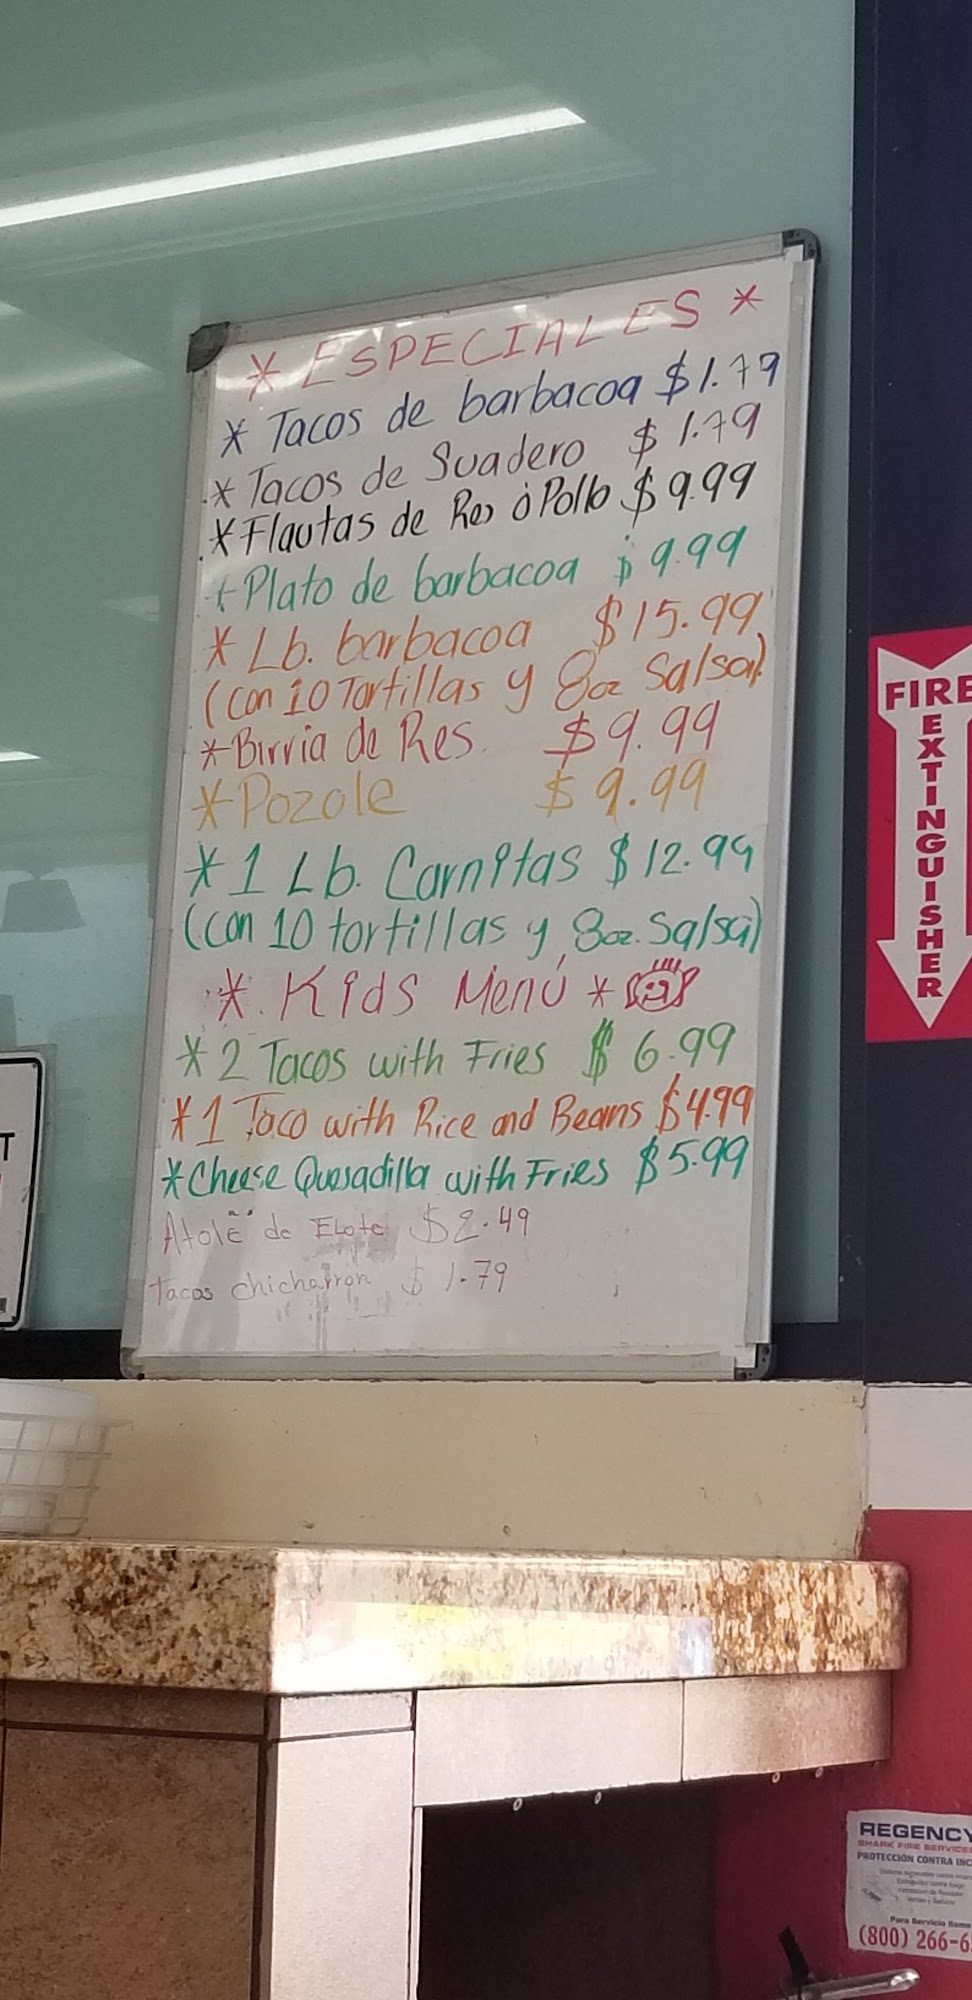 * ESPECIALES *
* Tacos de barbacoa $1.79
* Tacos de Suadero $1.79
* Flautas de Res ó Pollo $9.99
+ Plato de barbacoa $9.99
* Lb. barbacoa $15.99
(con 10 Tortillas y 8oz Salsa)
* Birria de Res. $9.99
* Pozole $9.99
* 1 Lb. Carnitas $12.99
(con 10 tortillas y 8oz. Salsa)
*. Kids Menú *
* 2 Tacos with Fries $6.99
* 1 Taco with Rice and Beans $4.99
* Cheese Quesadilla with Fries $5.99
Atole de Elote $2.49
Tacos chicharron $1.79
FIRE
EXTINGUISHER
T
REGENCY
SHARK FIRE SERVICES
PROTECCIÓN CONTRA INC
Para Servicio llame
(800) 266-6